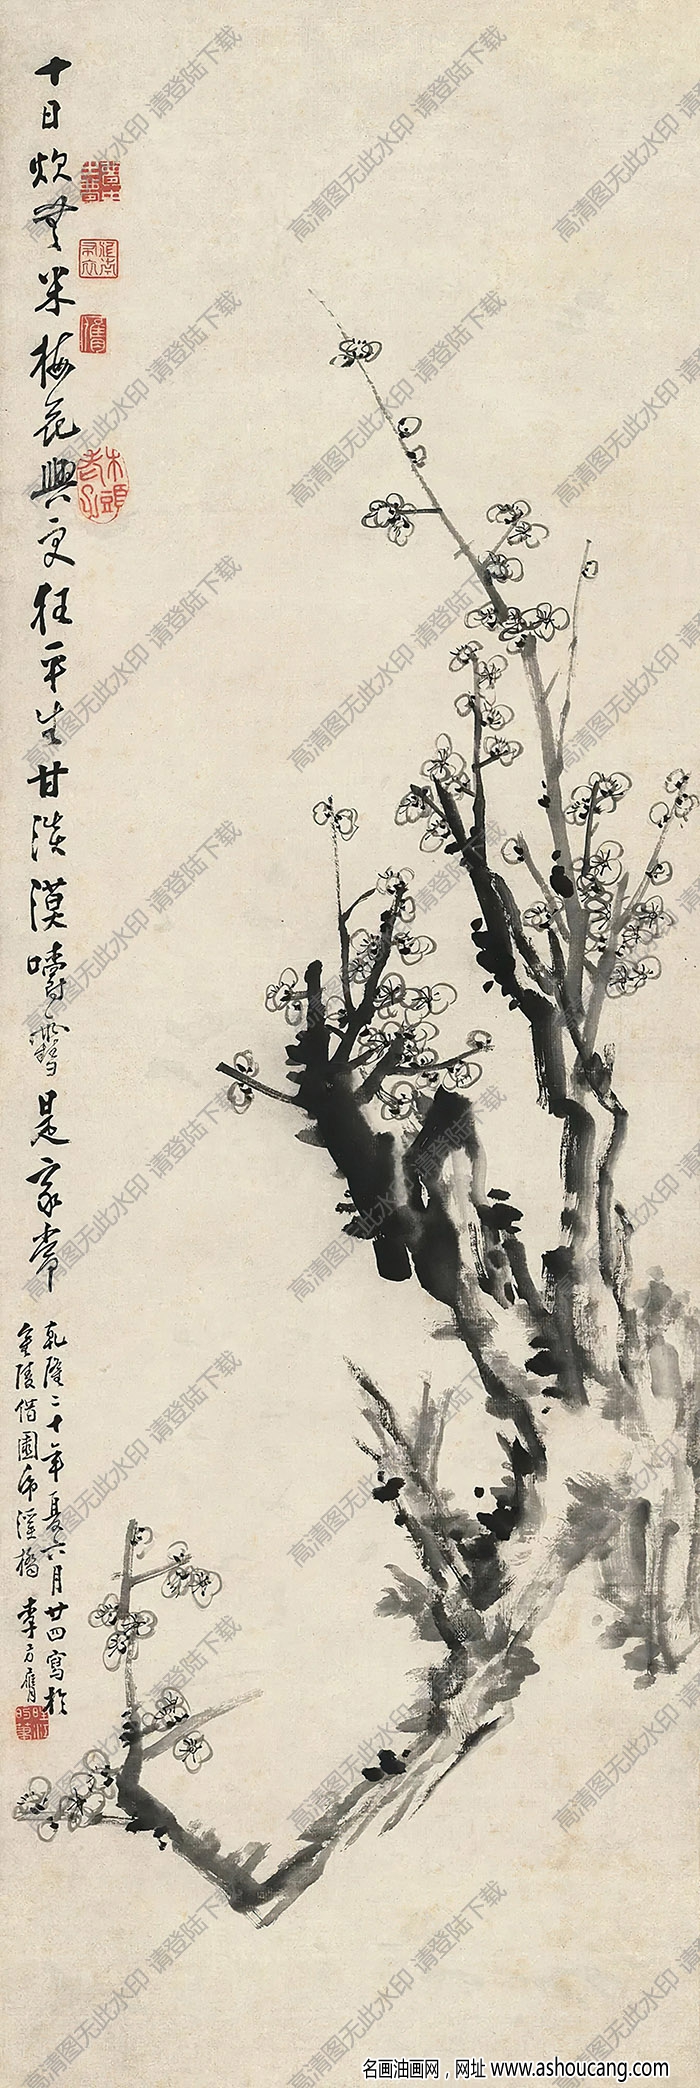 十日炊無米梅花興更狂平生甘淡漠嚼雪是家常
乾隆二十年夏六月廿四寫於
金陵借園
橋 李方膺
木頭老子
高清图无此水印 请登陆下载
名画油画网，网址 www.ashoucang.com